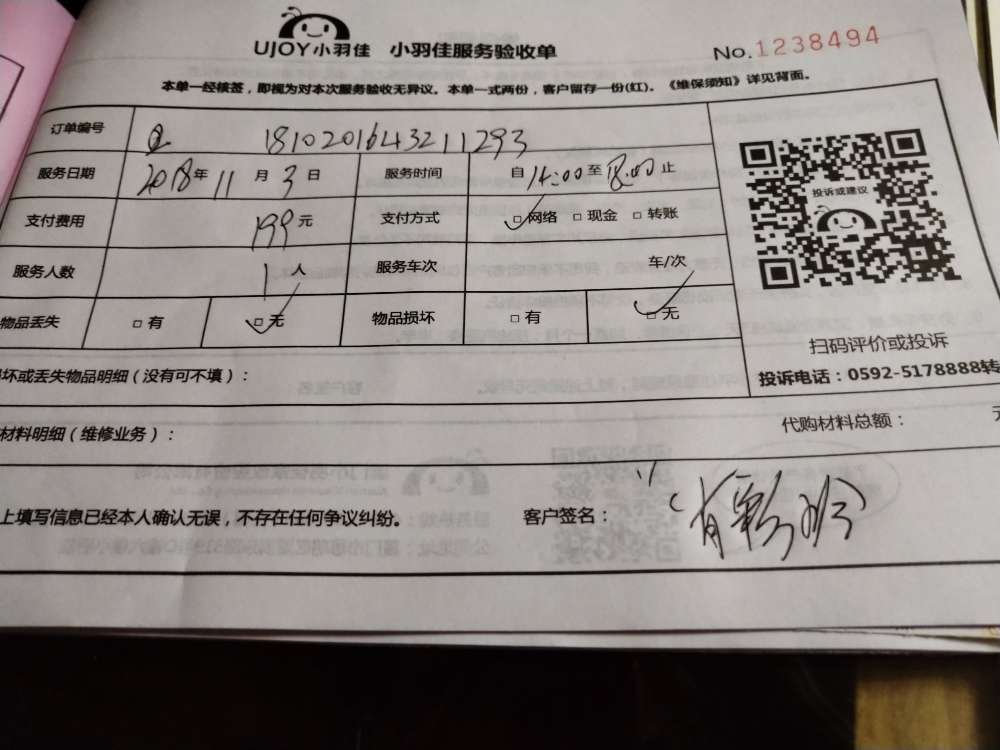 UJOY小羽佳 小羽佳服务验收单 No.1238494
本单一经核签，即视为对本次服务验收无异议。本单一式两份，客户留存一份(红)。《维保须知》详见背面。
订单编号 181020164321 1293
服务日期 2018年 11 月 3 日 服务时间 自 14:00 至 18:00 止
支付费用 199 元 支付方式 □网络 □现金 □转账
服务人数 1 人 服务车次 车/次
物品丢失 □有 □无 物品损坏 □有 □无
坏或丢失物品明细（没有可不填）：
材料明细（维修业务）： 代购材料总额：
上填写信息已经本人确认无误，不存在任何争议纠纷。 客户签名：
投诉或建议
扫码评价或投诉
投诉电话：0592-5178888转